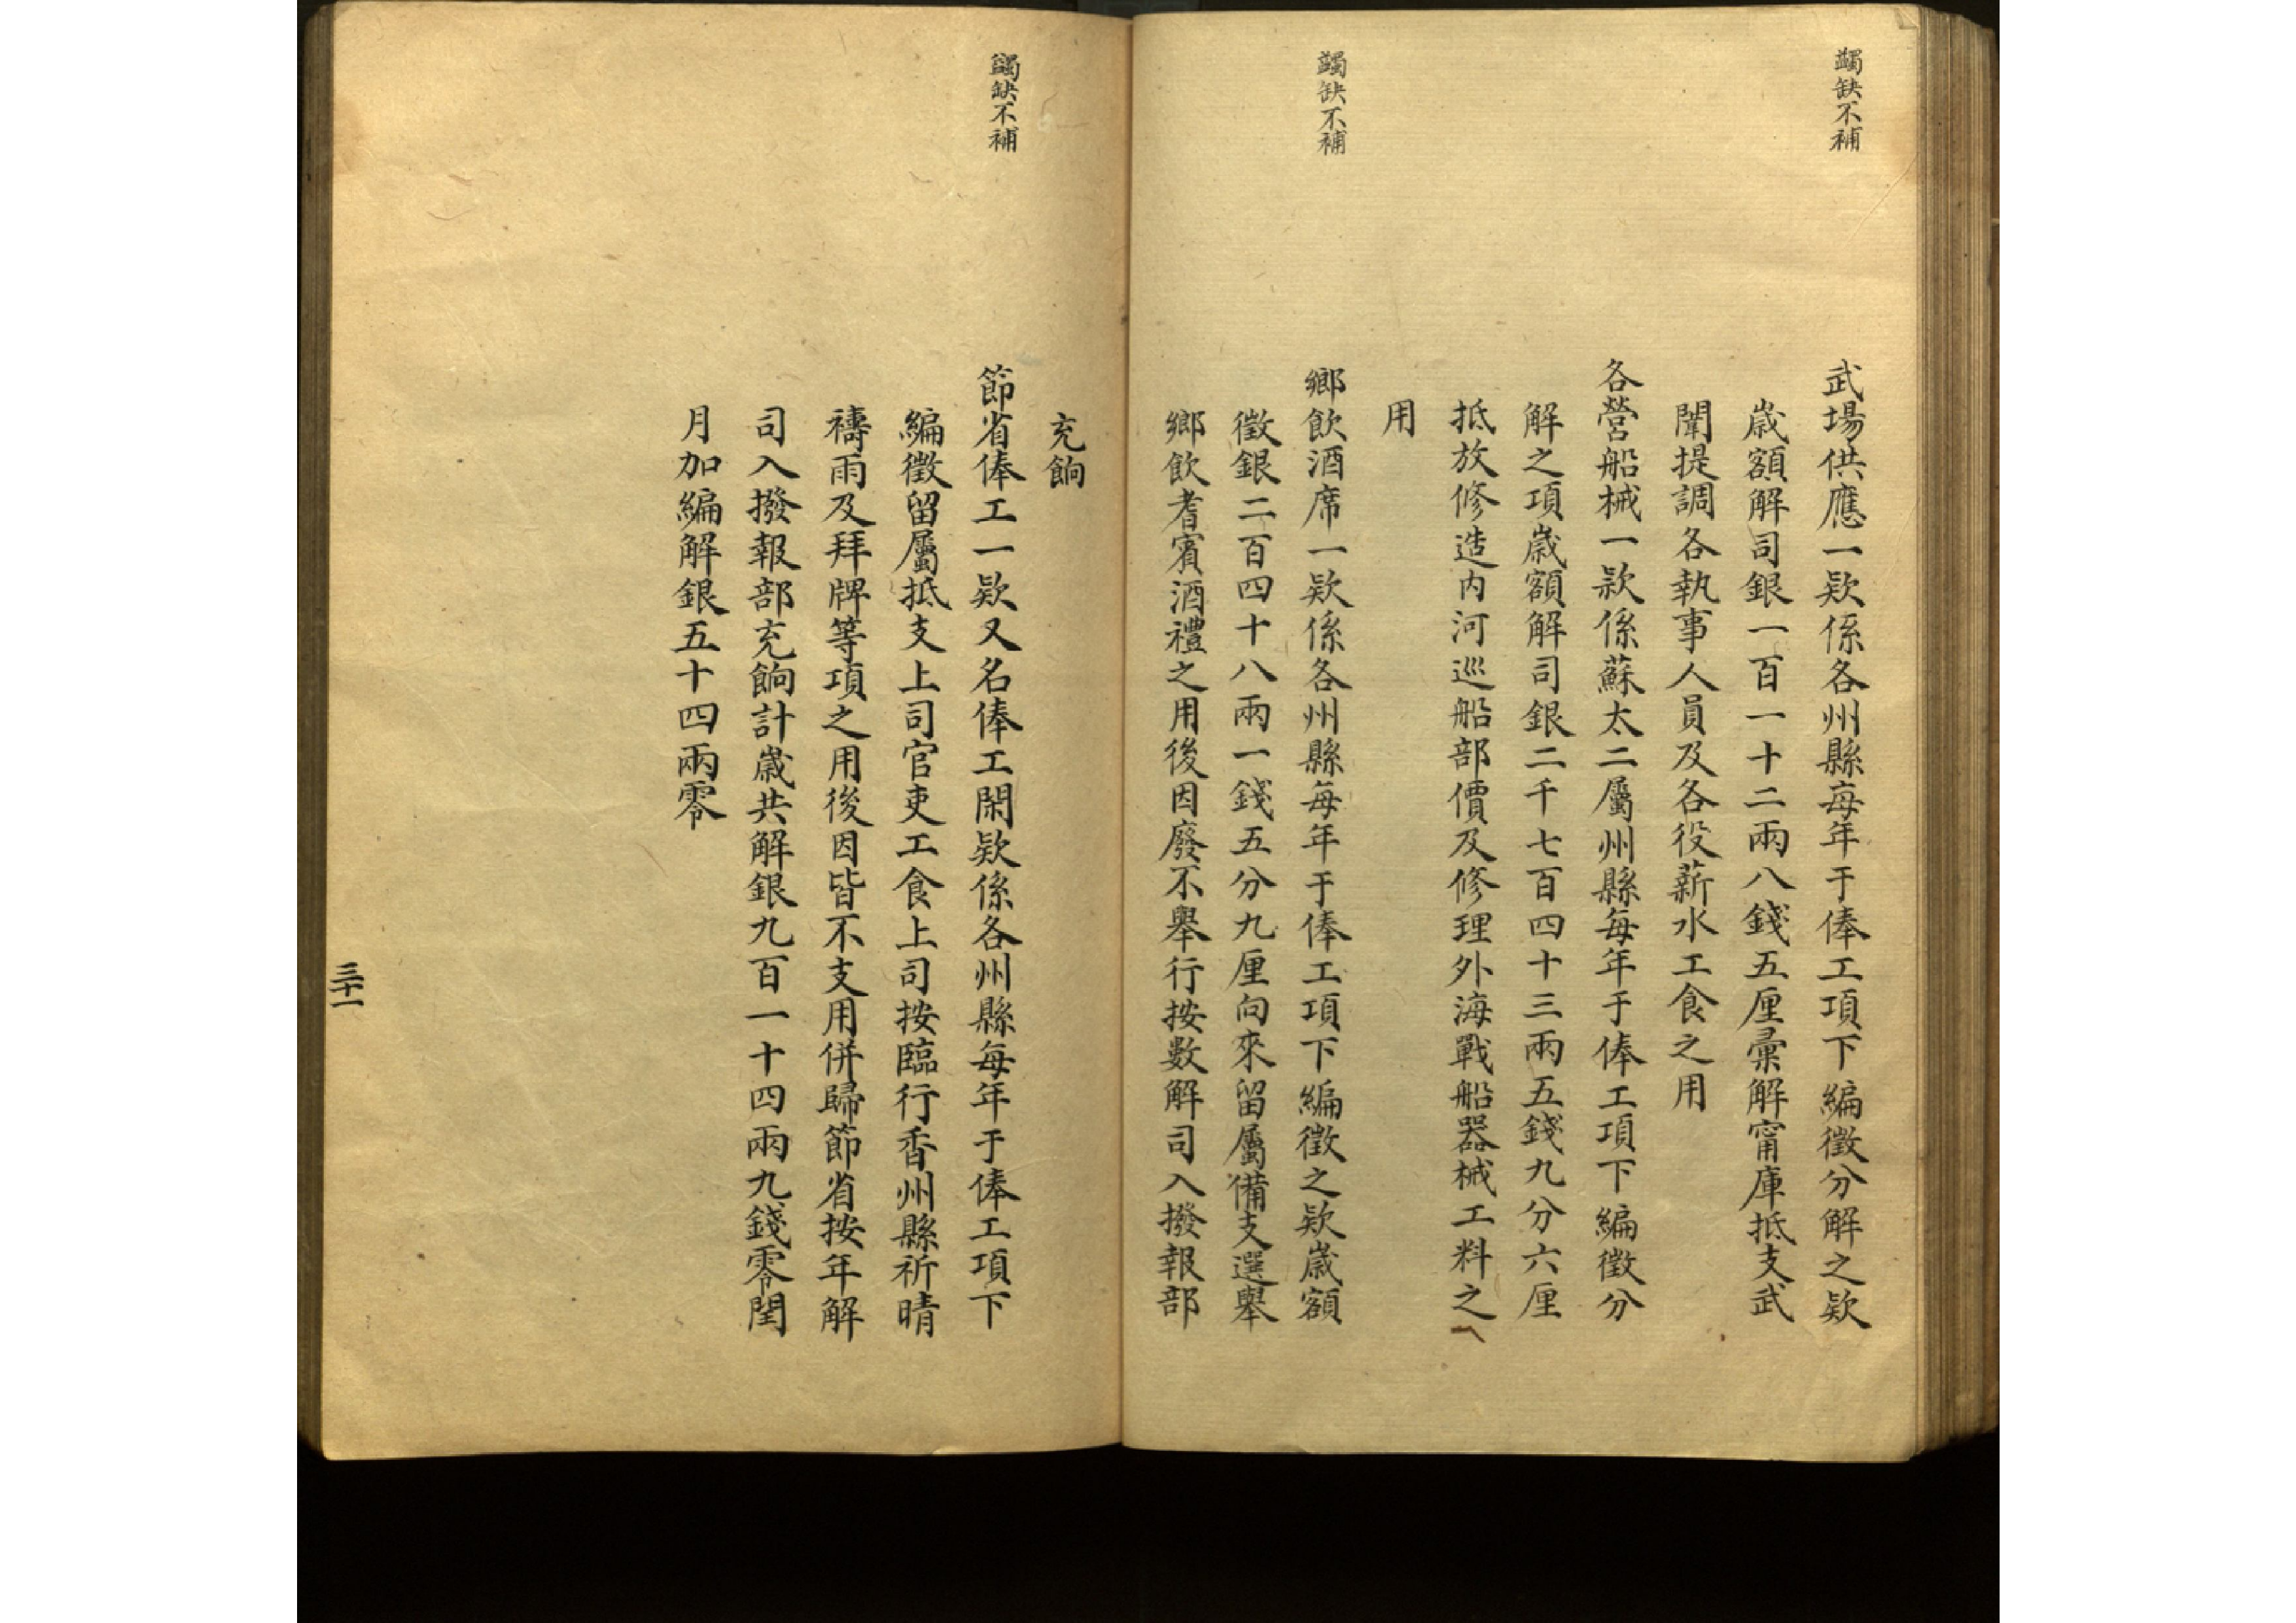 蠲缺不補
武場供應一欵係各州縣每年于俸工項下編徵分解之欵
歲額解司銀一百一十二兩八錢五厘彙解甯庫抵支武
闈提調各執事人員及各役薪水工食之用
各營船械一款係蘇太二屬州縣每年于俸工項下編徵分
解之項歲額解司銀二千七百四十三兩五錢九分六厘
抵放修造內河巡船部價及修理外海戰船器械工料之
用
蠲缺不補
鄉飲酒席一欵係各州縣每年于俸工項下編徵之欵歲額
徵銀二百四十八兩一錢五分九厘向來留屬備支選舉
鄉飲耆賓酒禮之用後因廢不舉行按数解司入撥報部
充餉
蠲缺不補
節省俸工一欵又名俸工閑欵係各州縣每年于俸工項下
編徵留屬抵支上司官吏工食上司按臨行香州縣祈晴
禱雨及拜牌等項之用後因皆不支用併歸節省按年解
司入撥報部充餉計歲共解銀九百一十四兩九錢零閏
月加編解銀五十四兩零
三十一